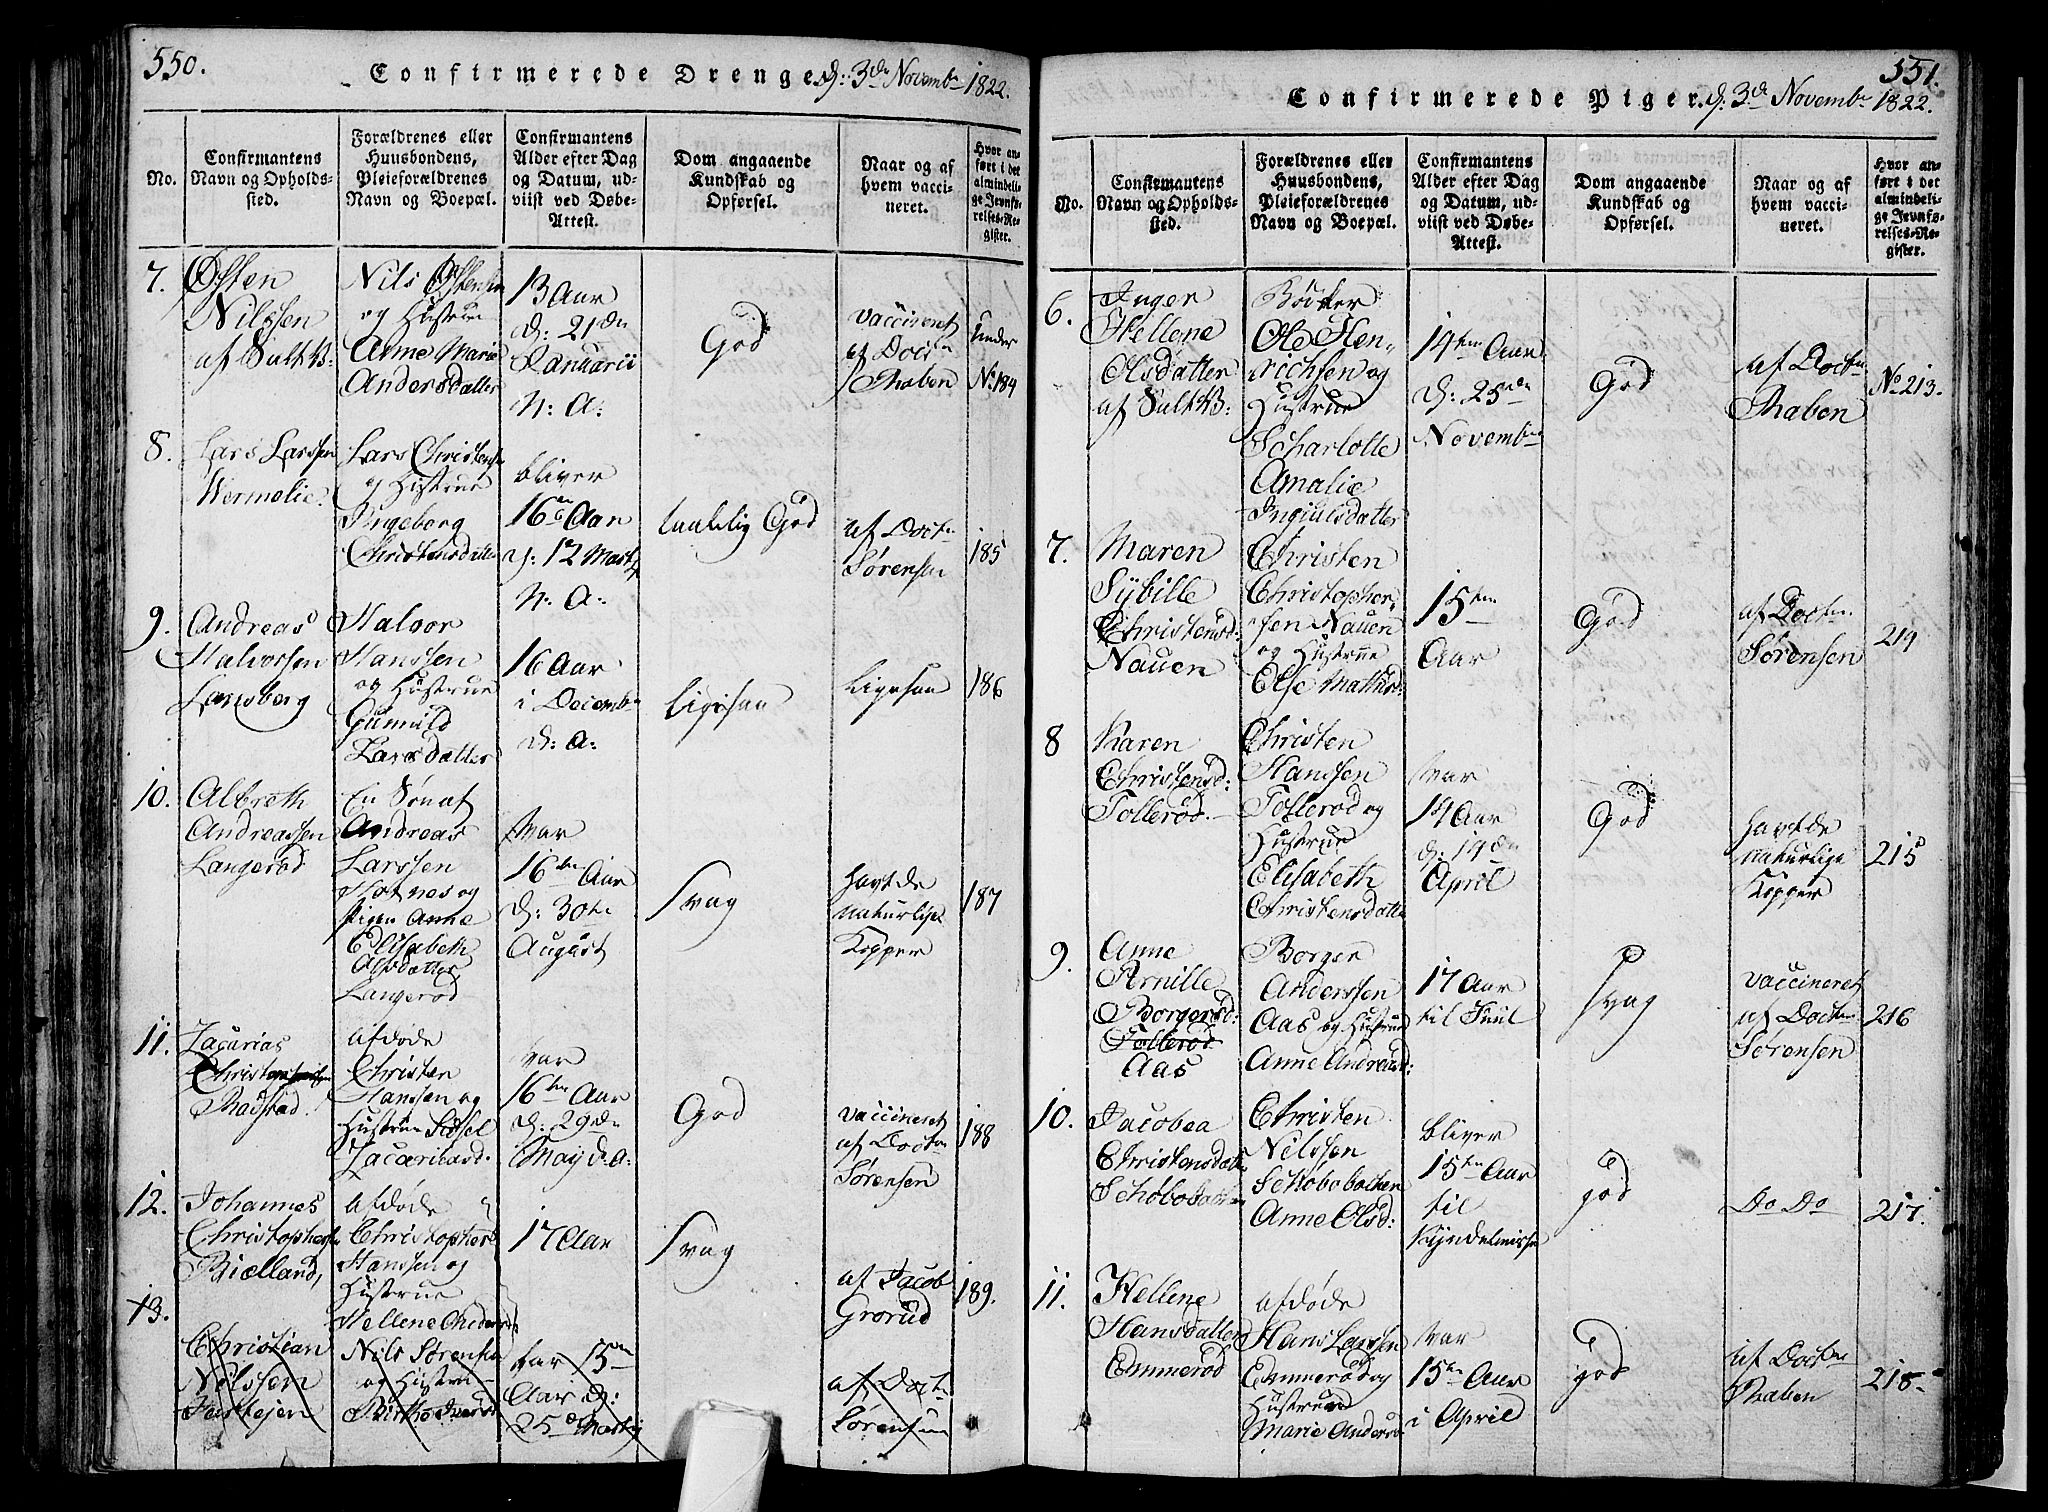 550.
Confirmerede Drenge. d: 3de Novembr 1822.
No.
Confirmantens
Navn og Opholds-
sted.
Forældrenes eller
Huusbondens,
Pleieforældrenes
Navn og Boepæl.
Confirmantens
Alder efter Dag
og Datum, ud-
viist ved Døbe-
Attest.
Dom angaaende
Kundskab og
Opførsel.
Naar og af
hvem vacci-
neret.
Hvor an-
ført i det
almindeli-
ge Jevnfø-
relses-Re-
gister.
7.
Østen
Nilssen
af Salt W:
Nils Østensen
og Hustrue
Anne Marie
Andersdatter
13 Aar
d: 21de
Januarii
N: A:
God
vaccineret
af Doct
Raben
Under
No 184
8.
Lars Larssen
Wermelie
Lars Christensen
og Hustrue
Ingeborg
Christensdatter
bliver
16 Aar
d: 12 Marty
N: A:
taalelig God
af Doctr
Sørensen
185
9.
Andreas
Halvorssen
Lansberg
Halvor
Hanssen
og Hustrue
Gunnild
Larsdatter
16 Aar
i Decembr
d: A:
Ligesaa
Ligesaa
186
10.
Albreth
Andreassen
Langerød
En Søn af
Andreas
Larssen
og
Pigen Anne
Elisabeth
Langerød
var
16ten Aar
d: 30te
August
Svag
havt de
naturlige
Kopper
187
11.
Zacarias
Christenssen
afdøde
Christen
Hanssen og
Hustrue Sissel
Zacariasd:
var
16ten Aar
d: 29de
May d: A:
God
vaccineret
af Doctr
Sørensen
188
12.
Johannes
Christophersen
Bielland,
afdøde
Christopher
Hanssen og
Hustrue
Hellene
17 Aar
Svag
af Jacob
Grorud
189.
13.
Christian
Nilssen
Nils Sørensen
og Hustrue
var 15
Aar d:
25 Marty
af Doctr
Sørensen
551.
Confirmerede Piger. d: 3de Novembr 1822.
No.
Confirmantens
Navn og Opholds-
sted.
Forældrenes eller
Huusbondens,
Pleieforældrenes
Navn og Boepæl.
Confirmantens
Alder efter Dag
og Datum, ud-
viist ved Døbe-
Attest.
Dom angaaende
Kundskab og
Opførsel.
Naar og af
hvem vacci-
neret.
Hvor an-
ført i det
almindeli-
ge Jevnfø-
relses-Re-
gister.
6.
Inger
Hellene
Olsdatter
af Salt W:
Bödker
Ole Hen-
richsen og
Hustrue
Scharlotte
Amalie
14ten Aar
d: 25de
Novembr
God
af Doctr
Raben
No 213.
7.
Maren
Sybille
Christensd:
Nauen
Christen
Christopher-
sen Nauen
og Hustrue
Else
15ten
Aar
God
af Doctr
Sørensen
214
8
Karen
Christensd:
Tollerød.
Christen
Hanssen
Tollerød og
Hustrue
Elisabeth
Christensdatter
var
14 Aar
d: 14de
April
God
havt de
naturlige
Kopper
215
9.
Anne
Arnille
Borgersd:
Tollerød
Aas
Borger
Anderssen
Aas og Hustrue
Anne Andreasd:
17 Aar
til Juul
Svag
vaccineret
af Doctr
Sørensen
216
10.
Jacobea
Christensdatter
Christen
Nilssen
Schobobachen
Anne Olsd:
bliver
15ten Aar
til
Kyndelmisse
god
Do Do
217.
11.
Hellene
Hansdatter
Emmerød
afdøde
Hans Larssen
Emmerød og
Hustrue
Marie Andersd:
var
15ten Aar
i April
god
af Doctr
Raben
218.